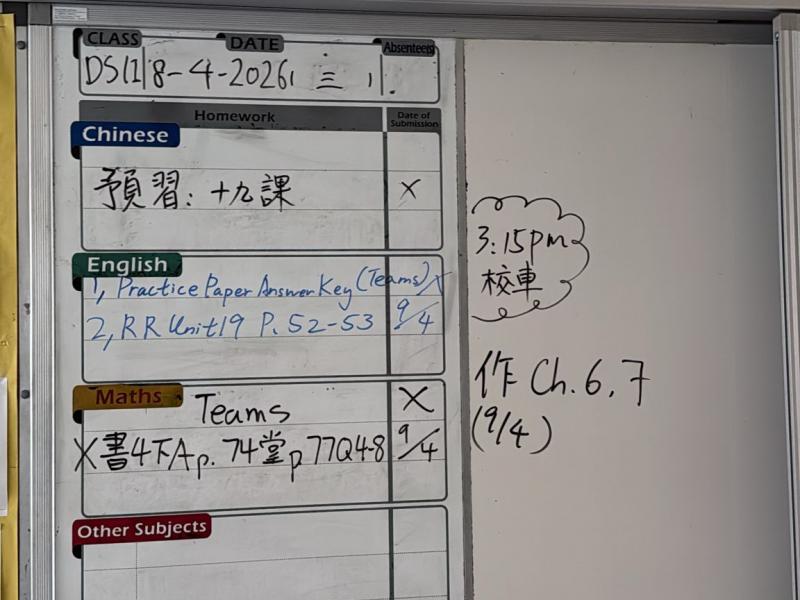 CLASS DATE Absentee(s)
8-4-2026 ( 三 )
Homework Date of Submission
Chinese
預習: 十九課 X
English
1, Practice Paper Answer Key (Teams) X
2, RR Unit 19 P. 52-53 9/4
Maths
Teams X
X書4下A p. 74堂 p 77Q4-8 9/4
Other Subjects
3:15pm
校車
作 Ch. 6, 7
(9/4)